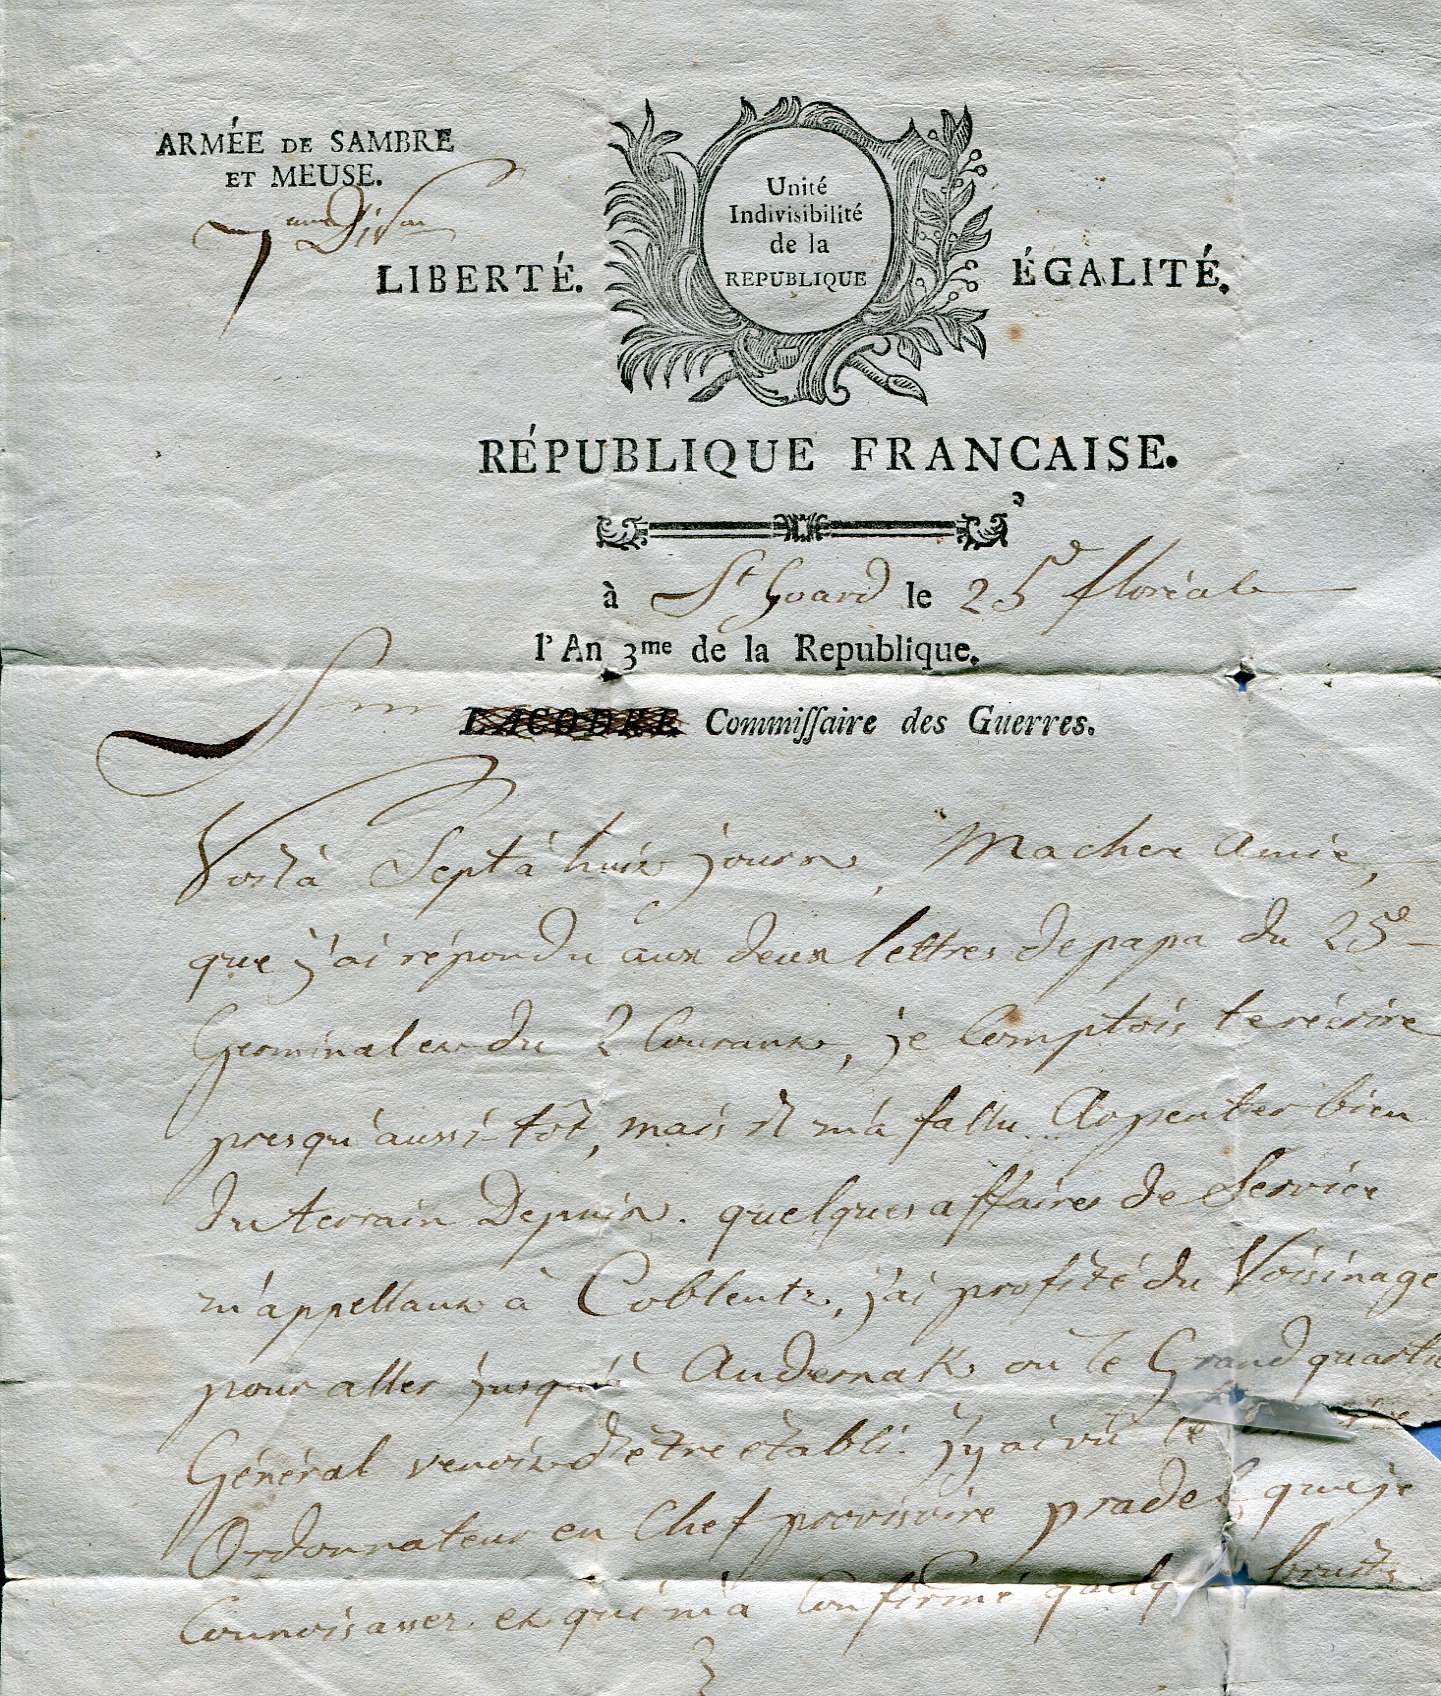 ARMÉE DE SAMBRE
ET MEUSE.
7eme Div.on
LIBERTÉ.
Unité
Indivisibilité
de la
REPUBLIQUE
ÉGALITÉ.
RÉPUBLIQUE FRANCAISE.
à St Goard le 25 floréal
l'An 3me de la Republique.
LACODRE Commissaire des Guerres.
Voilà Sept à huit jours, Ma chere amie,
que j'ai répondu aux deux lettres de papa du 25e
Germinal et du 2 Courant, je Comptois te récrire
presqu'aussi-tôt, mais il m'a fallu Arpenter bien
du terrain Depuis. quelques affaires de Service
m'appellant à Coblentz, j'ai profité du Voisinage
pour aller jusqu'à Andernak, ou le Grand quartie
Général venoit d'être établi. j'y ai vû le
Ordonnateur en Chef provisoire pradel que je
Connois assez. et qui m'a Confirmé bruits